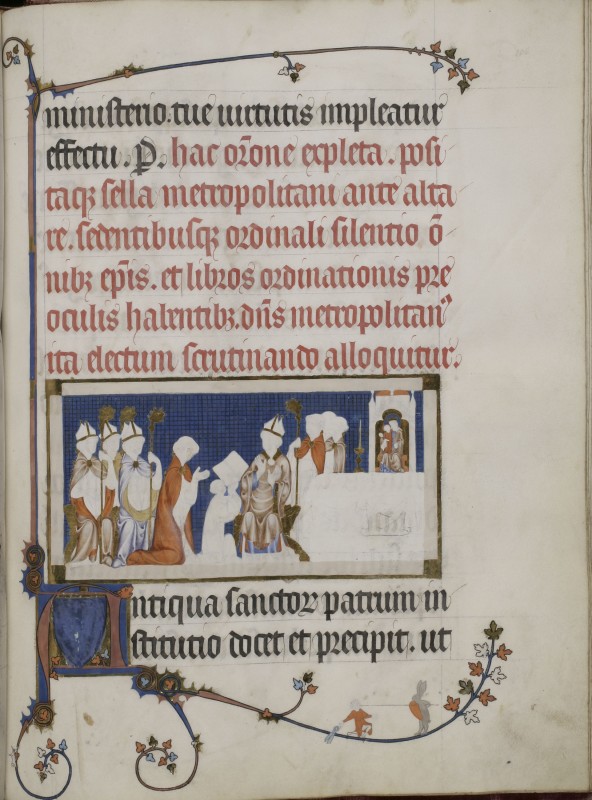 ministerio.tue uirtutis impleatur
effectu. P. hac or̄one expleta. posi
taqꝫ sella metropolitani ante alta
re. sedentibusqꝫ ordinali silentio ō
nibꝫ ep̄is. et libros ordinationis pre
oculis habentibꝫ. dn̄s metropolitanꝰ
ita electum scrutinando alloquitur.
Antiqua sanctoꝝ patrum in
stitutio docet et precipit. ut